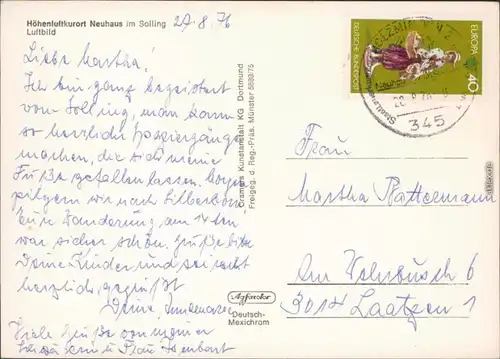 Höhenluftkurort Neuhaus im Solling
Luftbild
27.8.76
Liebe Martha!
Ich bin ganz begeistert
vom Solling, man kann
so herrliche Spaziergänge
machen, die sich meine
Füße gefallen lassen. Morgen
pilgern wir nach Silberborn
Eure Wanderung am 14ten
war sicher schön. Grüße bitte
Deine Kinder und sei recht
herzlich gegrüßt
Deine
Viele Grüße von meiner
Frau
Cramers Kunstanstalt KG Dortmund
Freigeg. d. Reg.-Präs. Münster 5893/75
Agfacolor
Deutsch-
Mexichrom
EUROPA
DEUTSCHE BUNDESPOST
40
345
Frau
Martha Plattermann
Am Wehrbusch 6
3014 Laatzen 1